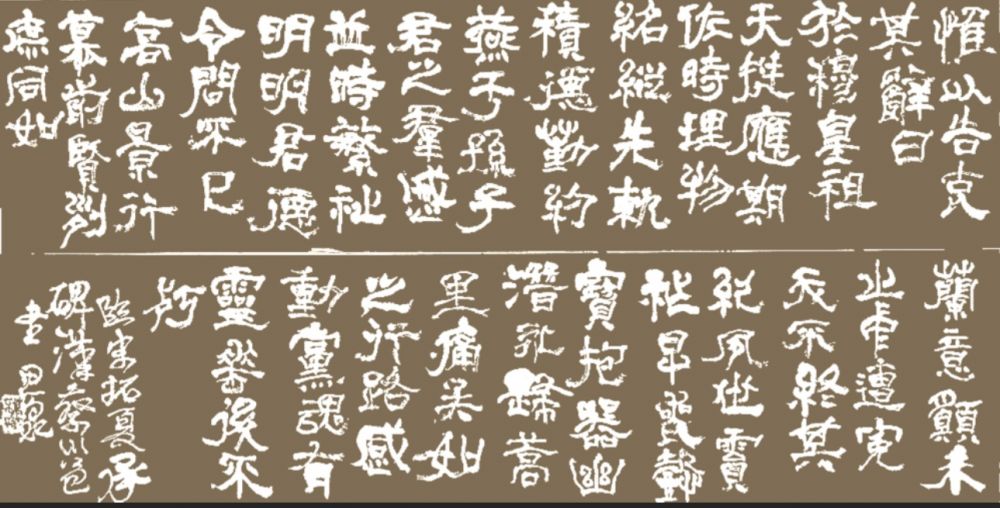 惟以告哀
其辭曰
於穆皇祖
天挺應期
佐時理物
紹縱先軌
積德勤約
燕于孫子
君之羣慼
並時繁祉
明明君德
令問不已
高山景行
慕前賢列
庶同如
蘭意願未
止中遭冤
夭不終其
紀夙世霣
祚早喪懿
寶抱器幽
潛永歸蒿
里痛矣如
之行路感
動黨魂有
靈垂後不
朽
臨宋拓夏承
碑漢蔡邕
書